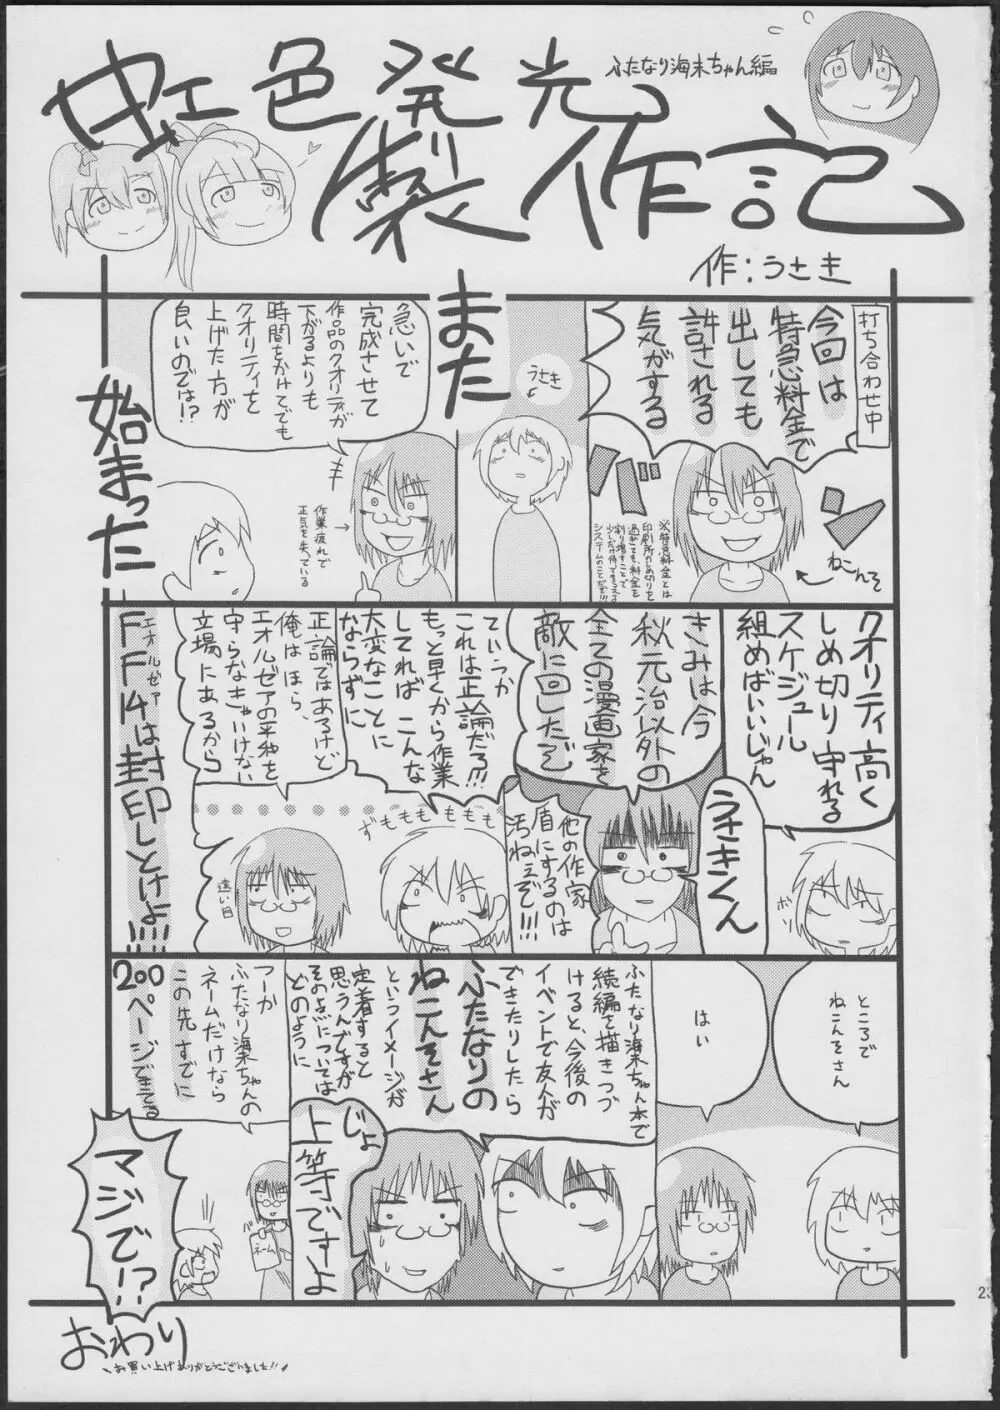 ふたなり海未ちゃん編
虹色発光
製作記
作:うさき
打ち合わせ中
今回は
特急料金で
出しても
許される
気がする
バ
ン
ねこんそ
※特急料金とは
印刷所のしめ切りを
過ぎても、料金を
割り増すことで
少しだけ待ってもらえる
システムのことだぞ!!!
うさき
急いで
完成させて
作品のクオリティが
下がるよりも
時間をかけてでも
クオリティを
上げた方が
良いのでは!?
作業疲れで
正気を失っている
また
始まった
クオリティ高く
しめ切り守れる
スケジュール
組めばいいじゃん
ボソ
うさきくん
きみは今
秋元治以外の
全ての漫画家を
敵に回したぞ
他の作家
盾にするのは
汚ねぇぞ!!!
ていうか
これは正論だろ!!!
もっと早くから作業
してれば こんな
大変なことに
ならずに
ずももももも
正論ではあるけど
俺は ほら、
エオルゼアの平和を
守らなきゃいけない
立場にあるから
遠い目
エオルゼア
FF14は封印しとけよ!!!!
ところで
ねこんそさん
はい
ふたなり海未ちゃん本で
続編を描きつづ
けると、今後の
イベントで友人が
できたりしたら
ふたなりの
ねこんそさん
というイメージが
定着すると
思うんですが
そのよについては
どのように
じょ
上等ですよ
つーか
ふたなり海未ちゃんの
ネームだけなら
この先すでに
200ページできてる
ネーム
マジで!?
おわり
お買い上げありがとうございました!!